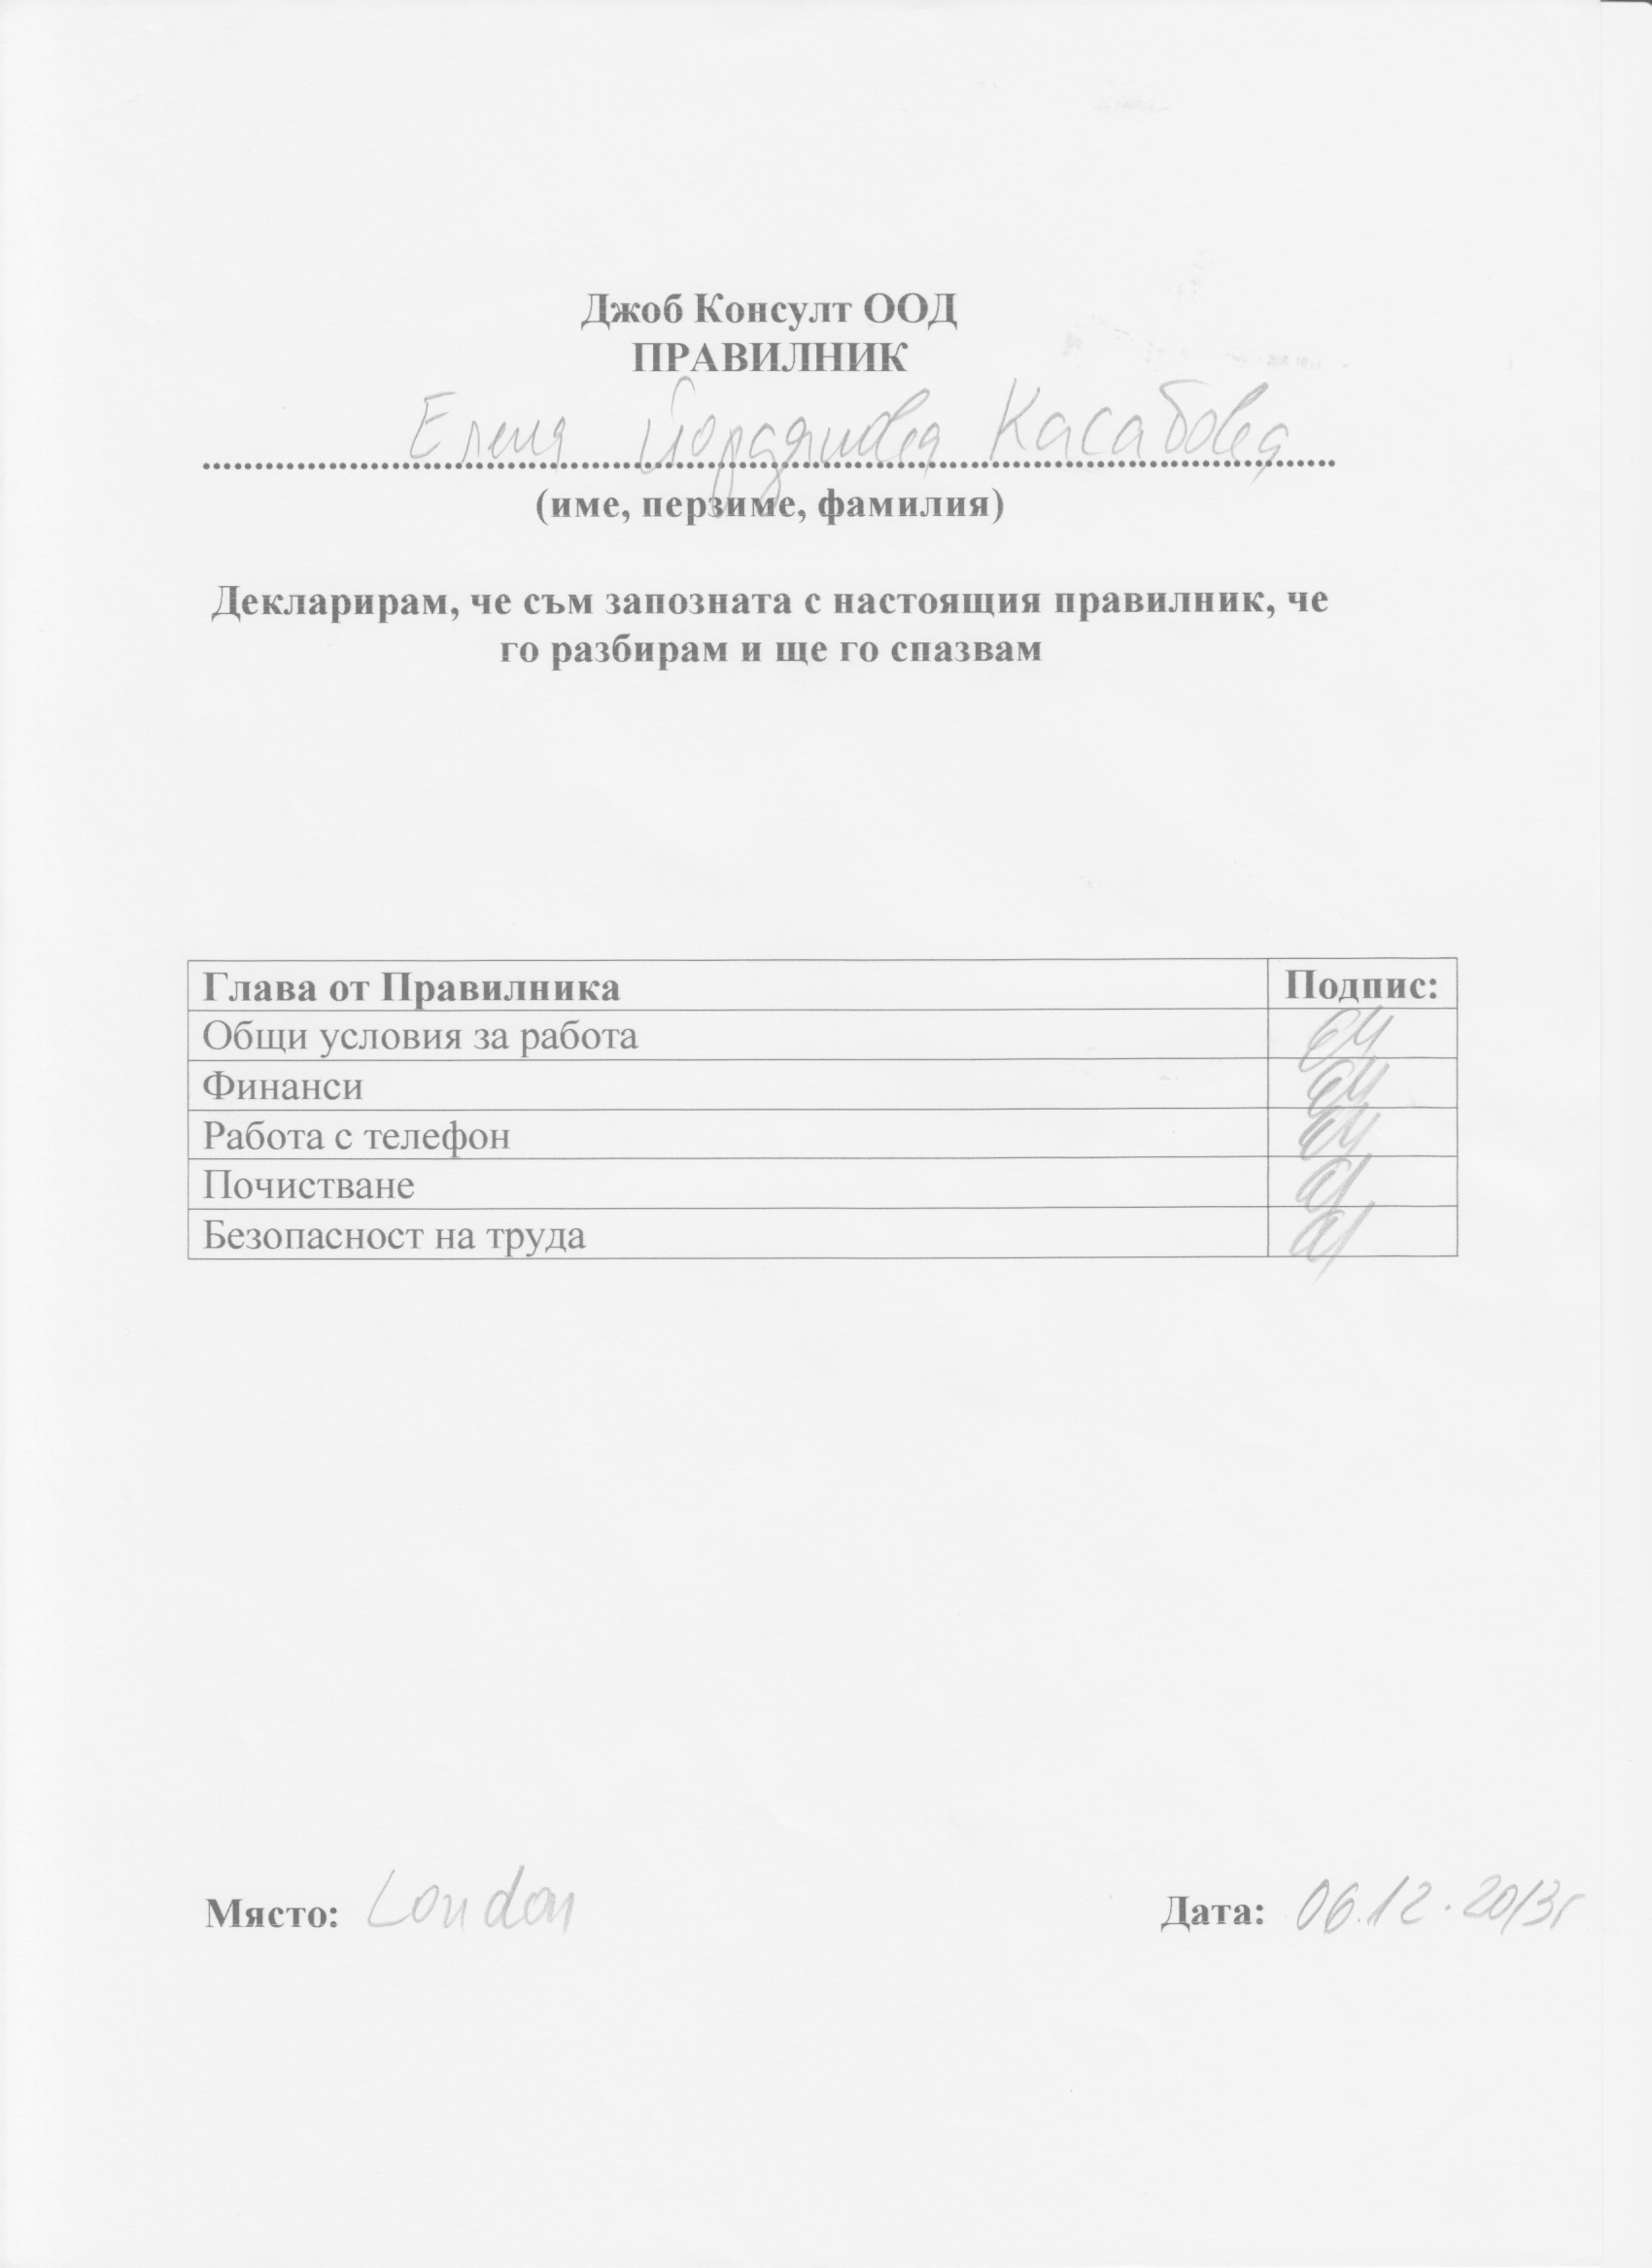 Джоб Консулт ООД
ПРАВИЛНИК
Елена Йорданова Касабова
(име, перзиме, фамилия)
Декларирам, че съм запозната с настоящия правилник, че
го разбирам и ще го спазвам
Глава от Правилника Подпис:
Общи условия за работа
Финанси
Работа с телефон
Почистване
Безопасност на труда
Място: London Дата: 06.12.2013г